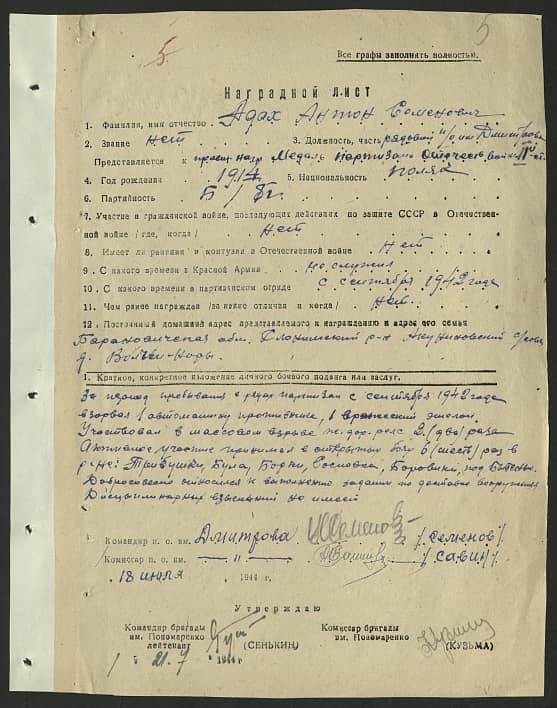 5
5
Все графы заполнять полностью.
Наградной лист
1. Фамилия, имя отчество Адах Антон Семенович
2. Звание нет 3. Должность, часть рядовой п/о им Дмитрова
Представляется к прав. награ Медаль партизан Отечеств. войны II й ст.
4. Год рождения 1914 5. Национальность поляк
6. Партийность Б/П
7. Участие в гражданской войне, последующих действиях по защите СССР в Отечествен-
ной войне (где, когда) нет
8. Имеет ли ранения и контузии в Отечественной войне Нет
9. С какого времени в Красной Армии не служил
10. С какого времени в партизанском отряде с сентября 1942 года
11. Чем ранее награжден (за какие отличия и когда) нет
12. Постоянный домашний адрес представляемого к награждению и адрес его семьи
Барановичская обл. Слонимский р-н с/сов
д. Волчьи-Норы.
1. Краткое, конкретное изложение личного боевого подвига или заслуг.
За период пребывания в рядах партизан с сентября 1942 года
взорвал 1 автомашину противника, 1 вражеский эшелон.
Участвовал в массовом взрыве ж.дор. рельс 2 (два) раза
Активное участие принимал в открытом бою 6 (шесть) раз в
р-не: Була, Борки, Боровики, под
Добросовестно относился к выполнению заданий по доставке вооружения
Дисциплинарных взысканий не имеет
Командир п. о. им. Дмитрова /Семенов/
Комиссар п. о. им. —"— /Савин/
18 июля 1944 г.
Утверждаю
Командир бригады Комиссар бригады
им. Пономаренко им. Пономаренко
лейтенант (СЕНЬКИН) (КУЗЬМА)
21.7 1944 г